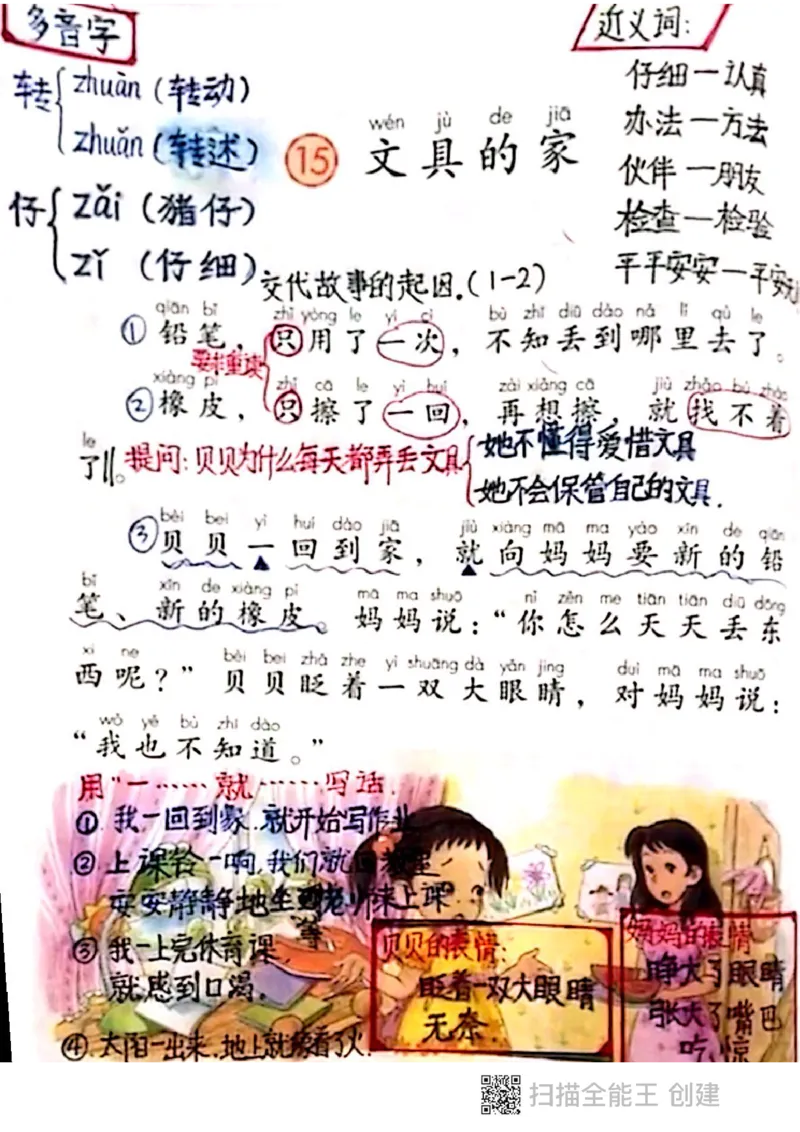 多音字
转 zhuàn (转动)
zhuǎn (转述)
仔 zǎi (猪仔)
zǐ (仔细)
近义词:
仔细—认真
办法—方法
伙伴—朋友
检查—检验
平平安安—平安
wén jù de jiā
15 文具的家
交代故事的起因。(1-2)
qiān bǐ zhǐ yòng le yí cì bù zhī diū dào nǎ lǐ qù le
① 铅笔，只用了一次，不知丢到哪里去了。
要非重读
xiàng pí zhǐ cā le yì huí zài xiǎng cā jiù zhǎo bù zháo
② 橡皮，只擦了一回，再想擦，就找不着
le
了。
提问:贝贝为什么每天都弄丢文具
她不懂得爱惜文具
她不会保管自己的文具.
bèi bei yì huí dào jiā jiù xiàng mā ma yào xīn de qiān
③ 贝贝一回到家，就向妈妈要新的铅
bǐ xīn de xiàng pí mā ma shuō nǐ zěn me tiān tiān diū dōng
笔、新的橡皮。妈妈说：“你怎么天天丢东
xi ne bèi bei zhǎ zhe yì shuāng dà yǎn jing duì mā ma shuō
西呢？”贝贝眨着一双大眼睛，对妈妈说：
wǒ yě bù zhī dào
“我也不知道。”
用“一……就……写话.
① 我一回到家,就开始写作业
② 上课铃一响,我们就回教室
安安静静地坐到老师来上课
③ 我一上完体育课, 等
就感到口渴。
④ 太阳一出来,地上就像着了火.
贝贝的表情:
眨着一双大眼睛
无奈.
妈妈的表情
睁大了眼睛
张大了嘴巴
吃惊
扫描全能王 创建